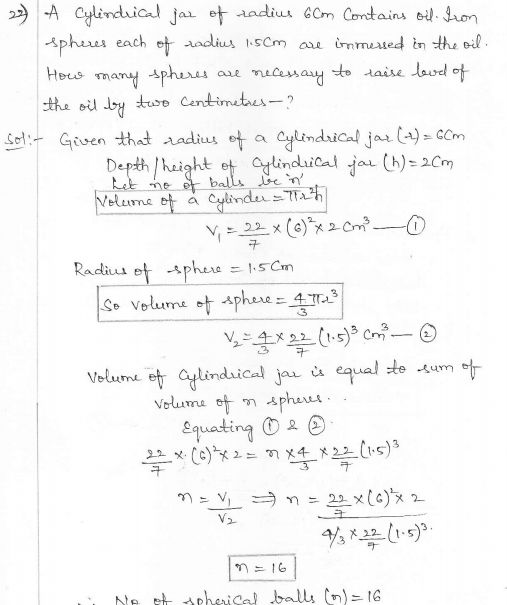 22) A Cylindrical jar of radius 6Cm Contains oil. Iron
spheres each of radius 1.5Cm are immersed in the oil.
How many spheres are necessary to raise level of
the oil by two Centimetres—?
Sol:- Given that radius of a Cylindrical jar (r) = 6Cm
Depth/height of Cylindrical jar (h) = 2Cm
Let no of balls be 'n'
Volume of a Cylinder = πr²h
V₁ = 22/7 × (6)² × 2 Cm³ — ①
Radius of sphere = 1.5Cm
So volume of sphere = 4/3 πr³
V₂ = 4/3 × 22/7 (1.5)³ Cm³ — ②
Volume of Cylindrical jar is equal to sum of
volume of n spheres.
Equating ① & ②.
22/7 × (6)² × 2 = n × 4/3 × 22/7 (1.5)³
n = V₁/V₂ ⟹ n = 22/7 × (6)² × 2 / 4/3 × 22/7 (1.5)³.
n = 16
∴ No of spherical balls (n) = 16